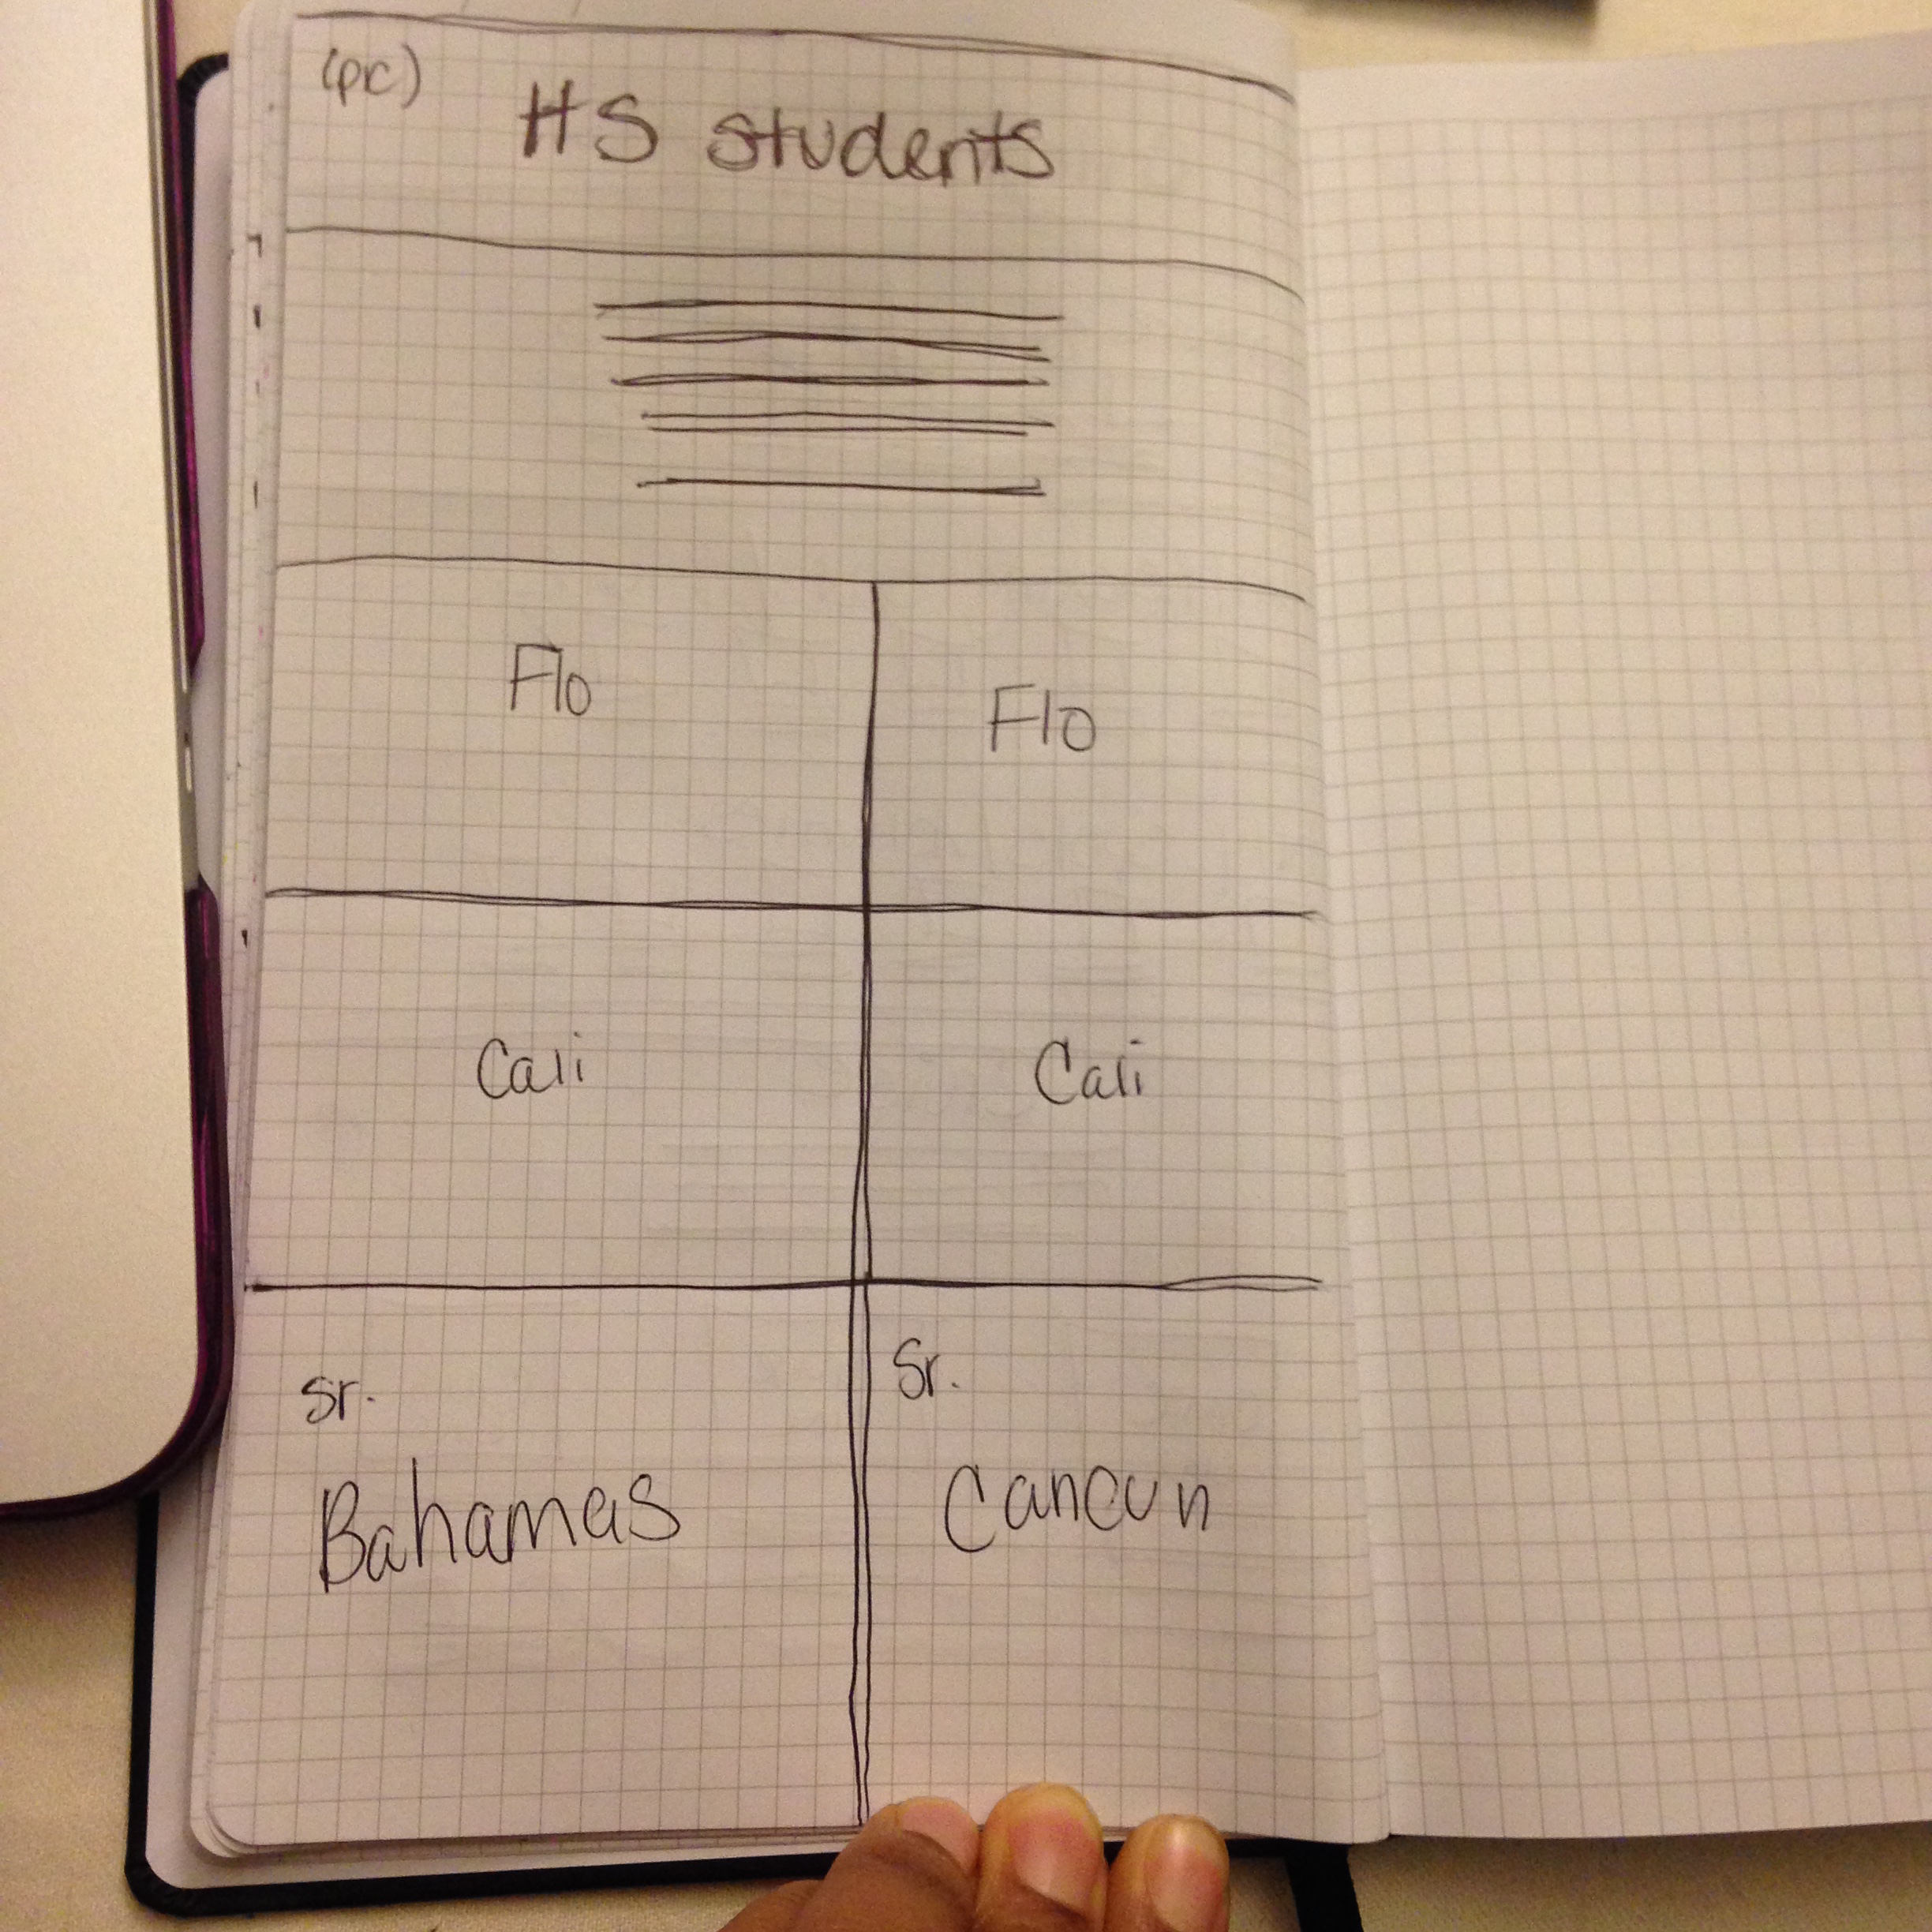 (pic)
HS students
Flo
Flo
Cali
Cali
Sr.
Bahamas
Sr.
Cancun